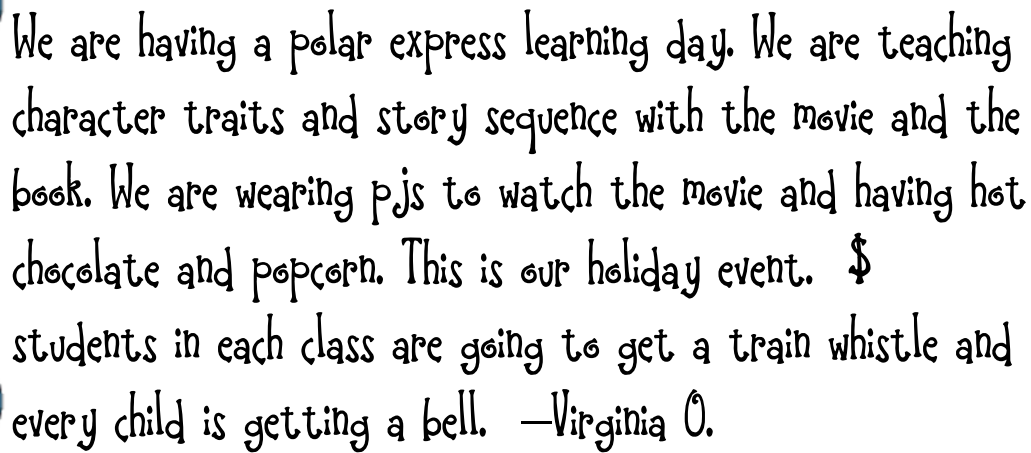 We are having a polar express learning day. We are teaching
character traits and story sequence with the movie and the
book. We are wearing pjs to watch the movie and having hot
chocolate and popcorn. This is our holiday event.  $
students in each class are going to get a train whistle and
every child is getting a bell.  —Virginia O.